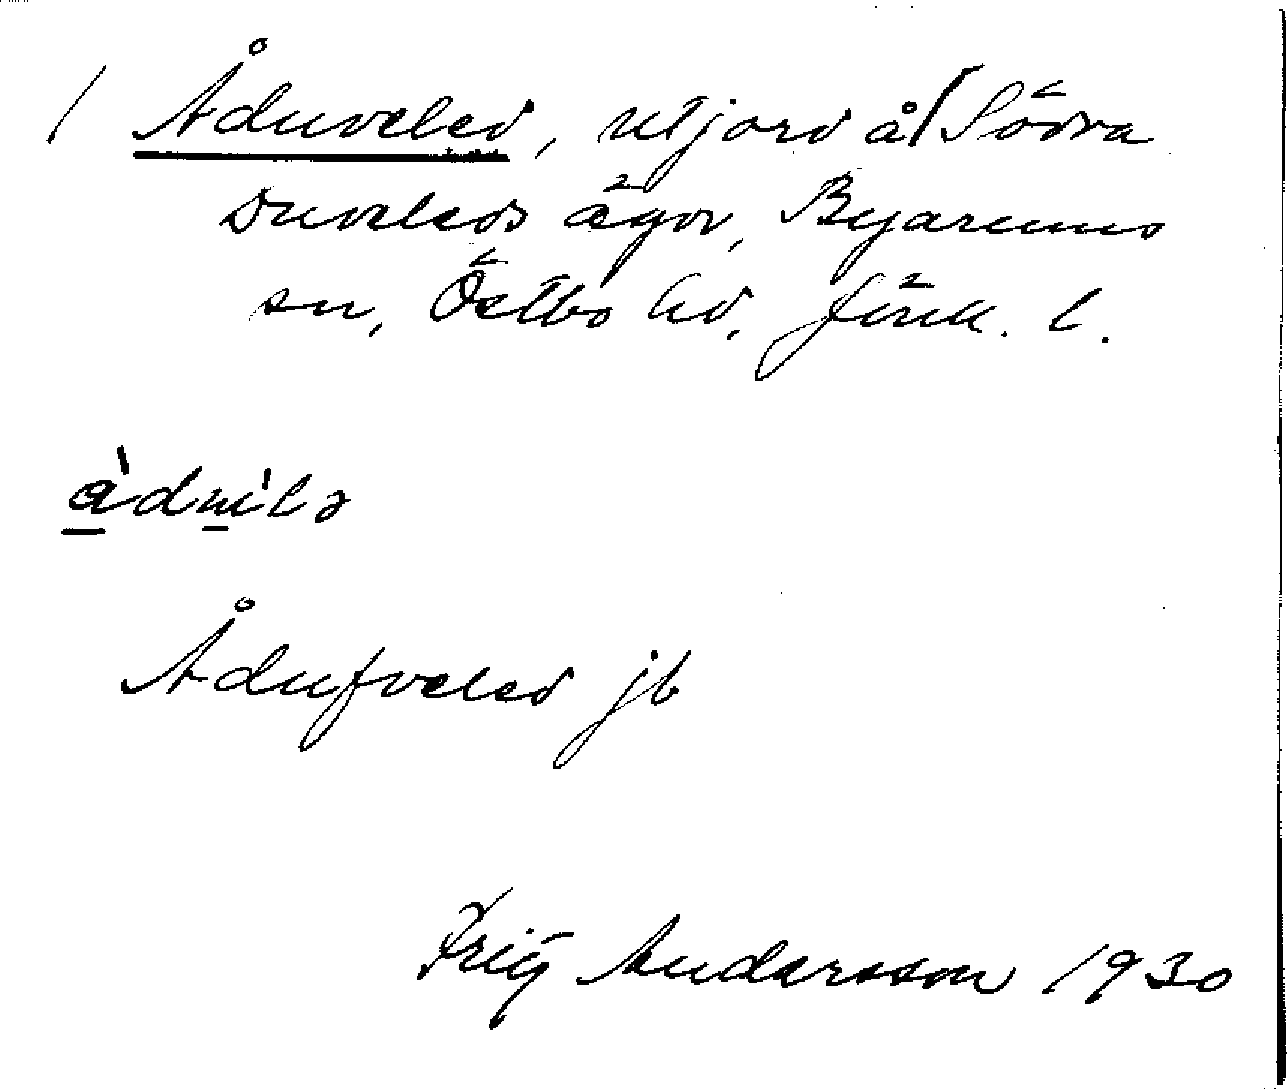 / Åduveled, utjord å / Södra
Duveleds ägor, Byarums
sn, Östbo hd, Jönk. l.
Ådufveled jb
Fritz Andersson 1930